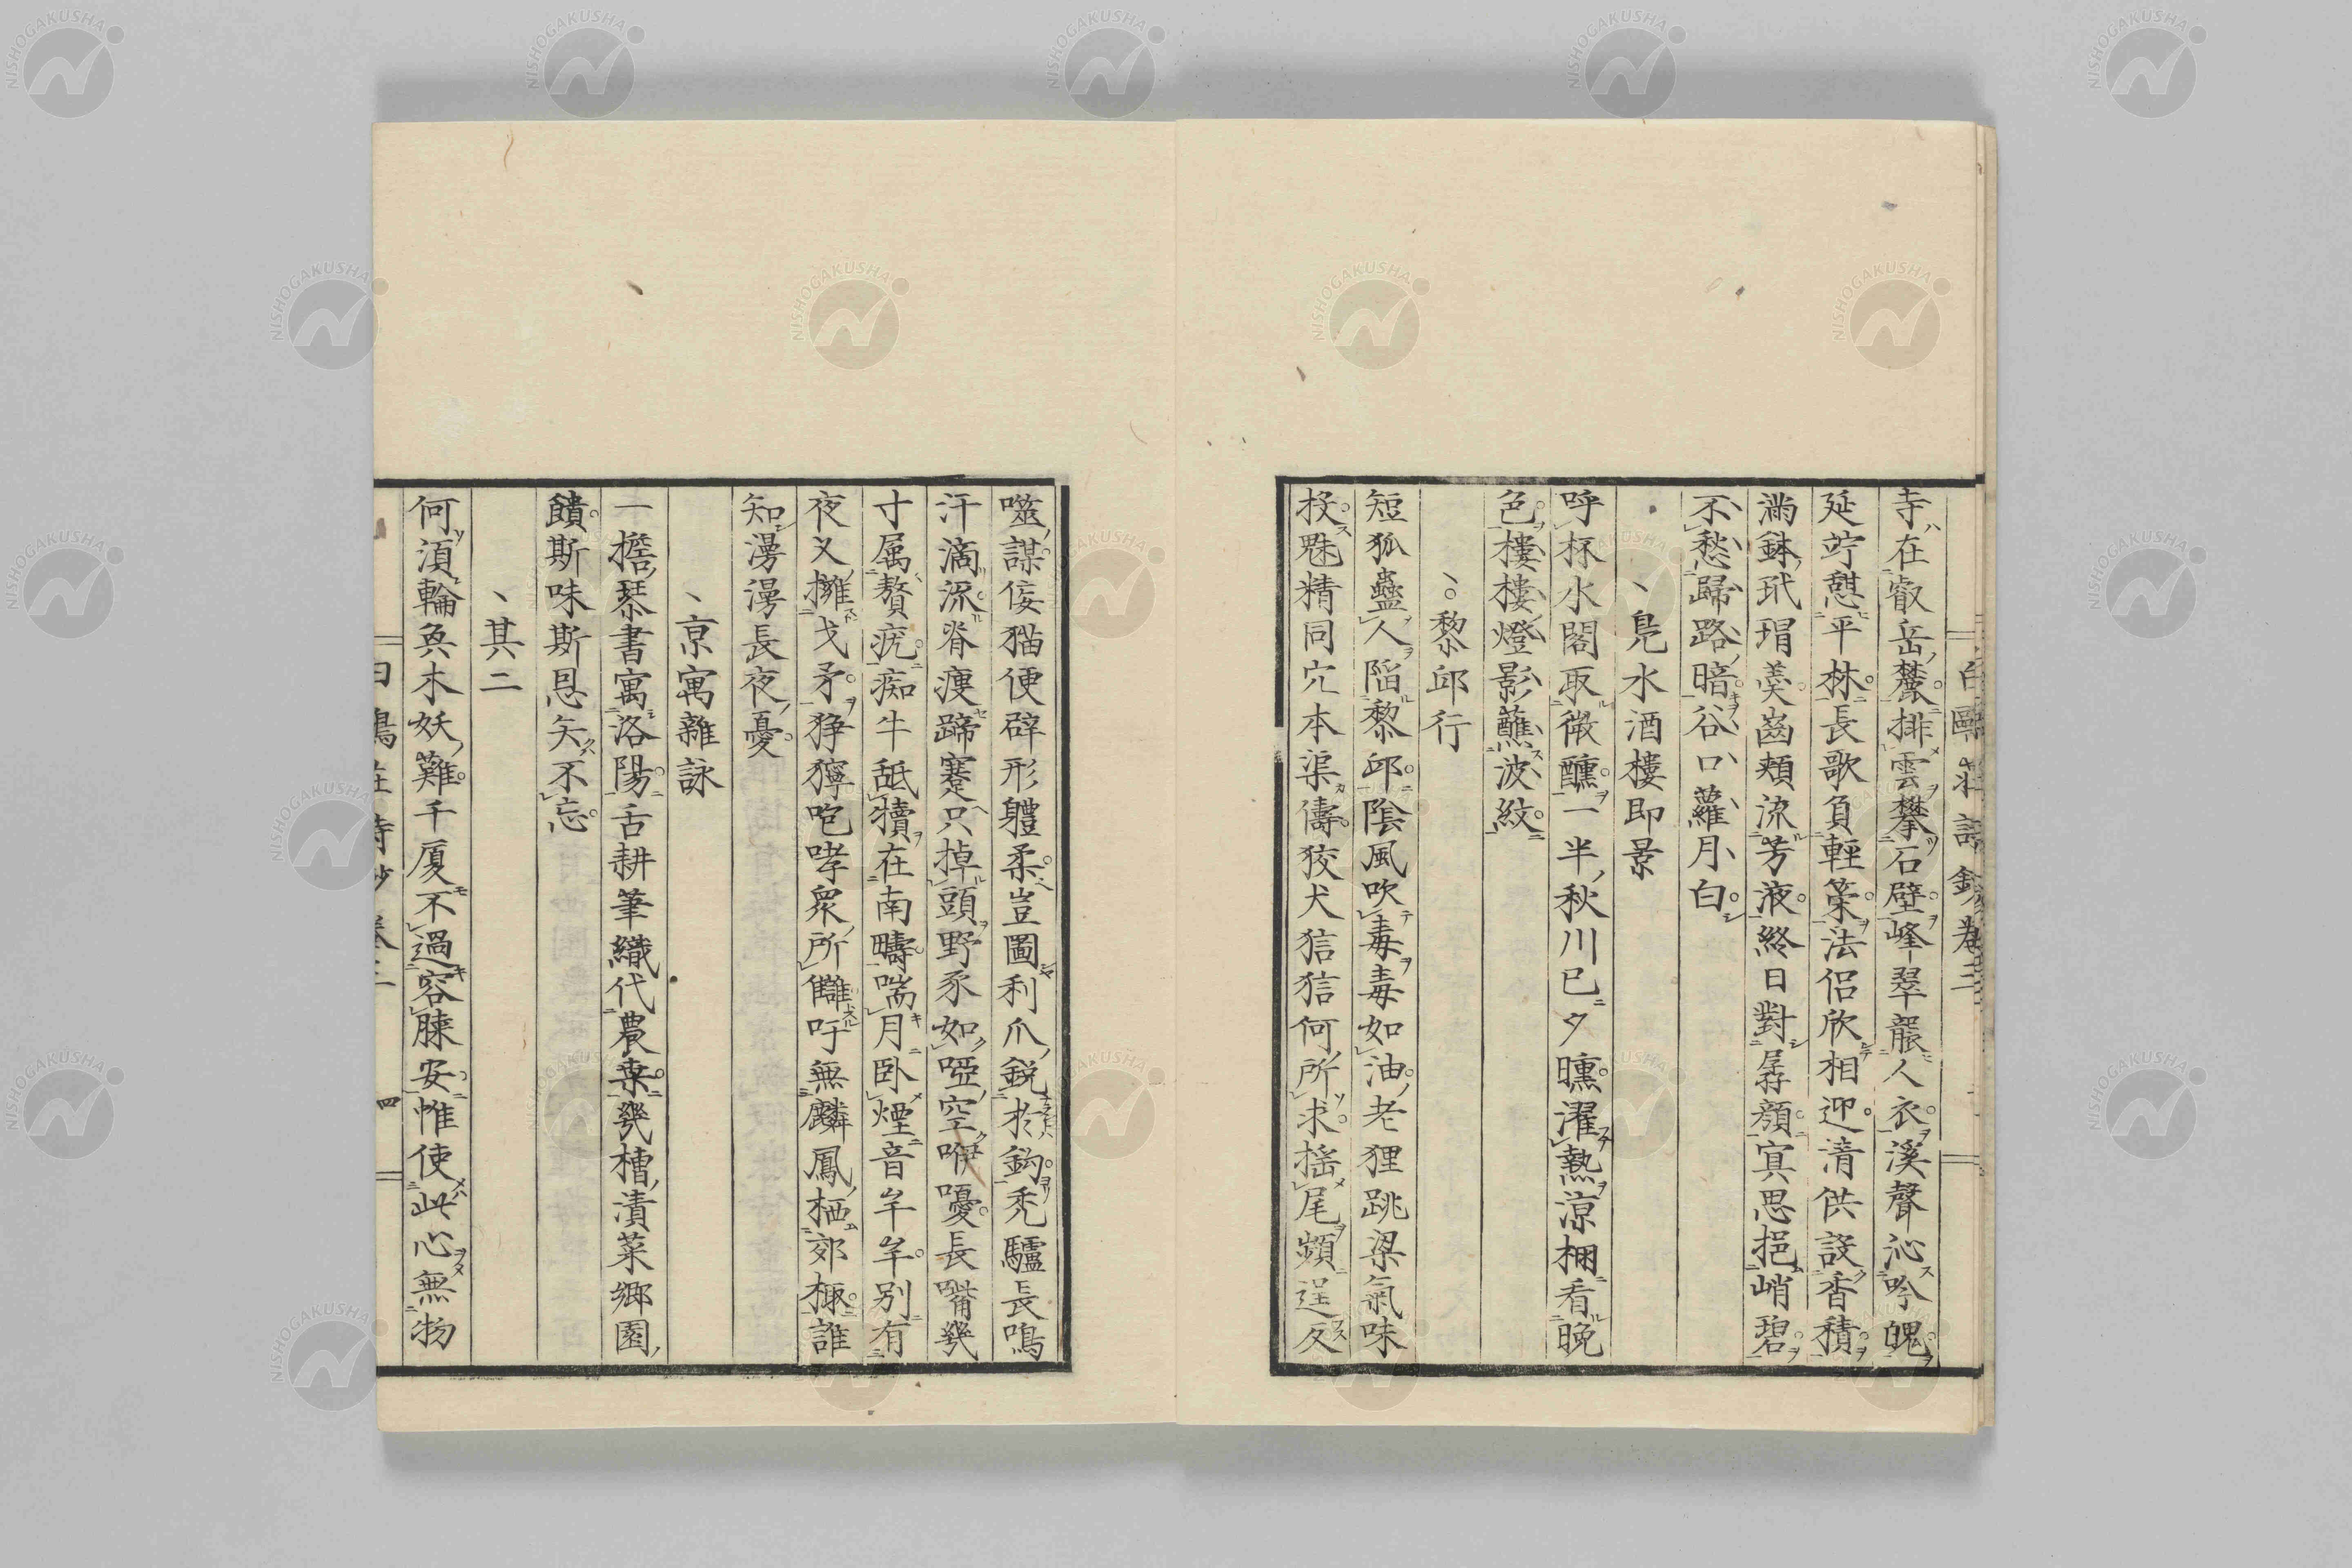 寺在叡岳麓排雲攀石壁峰翠龍人衣溪聲沁吟魄
延竚憩平林長歌負輕䇿法侣欣相迎清供設香積
滿鉢玳瑁羮齒頰流芳液終日對孱顔寘思挹峭碧
不愁歸路暗谷口蘿月白
鳧水酒樓即景
呼杯水閣取微醺一半秋川已夕曛濯熱凉棚看晩
色樓樓燈影蘸波紋
黎邱行
短狐蠱人陷黎邱陰風吹毒毒如油老狸跳梁氣味
投魅精同穴本渠儔狡犬狺狺何所求搖尾頻逞反
噬謀侫猫便辟形軆柔豈圖利爪鋭於鈎禿驢長鳴
汗滴流脊痩蹄蹇只掉頭野豕如啞空咿嚘長嘴幾
寸属贅疣痴牛舐犢在南疇喘月卧煙音牟牟别有
夜叉擁戈矛猙獰咆哮衆所讎吁無麟鳳栖郊棷誰
知漫漫長夜憂
京寓雜詠
一擔琴書寓洛陽舌耕筆織代農桒幾槽漬菜郷園
饋斯味斯恩矢不忘
其二
何湏輪奐木妖難千厦不過容膝安惟使此心無物